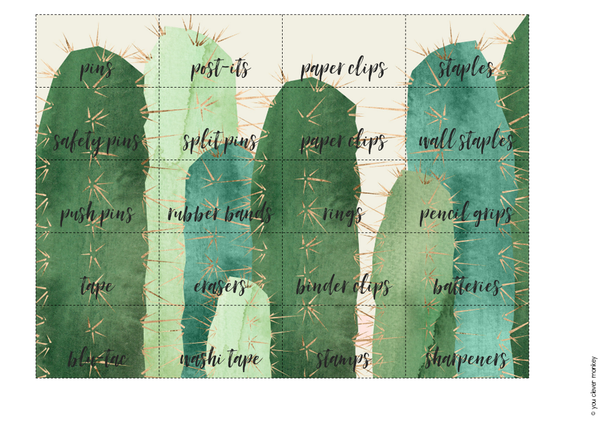 pins post-its paper clips staples
safety pins split pins paper clips wall staples
push pins rubber bands rings pencil grips
tape erasers binder clips batteries
blu tac washi tape stamps sharpeners
© you clever monkey